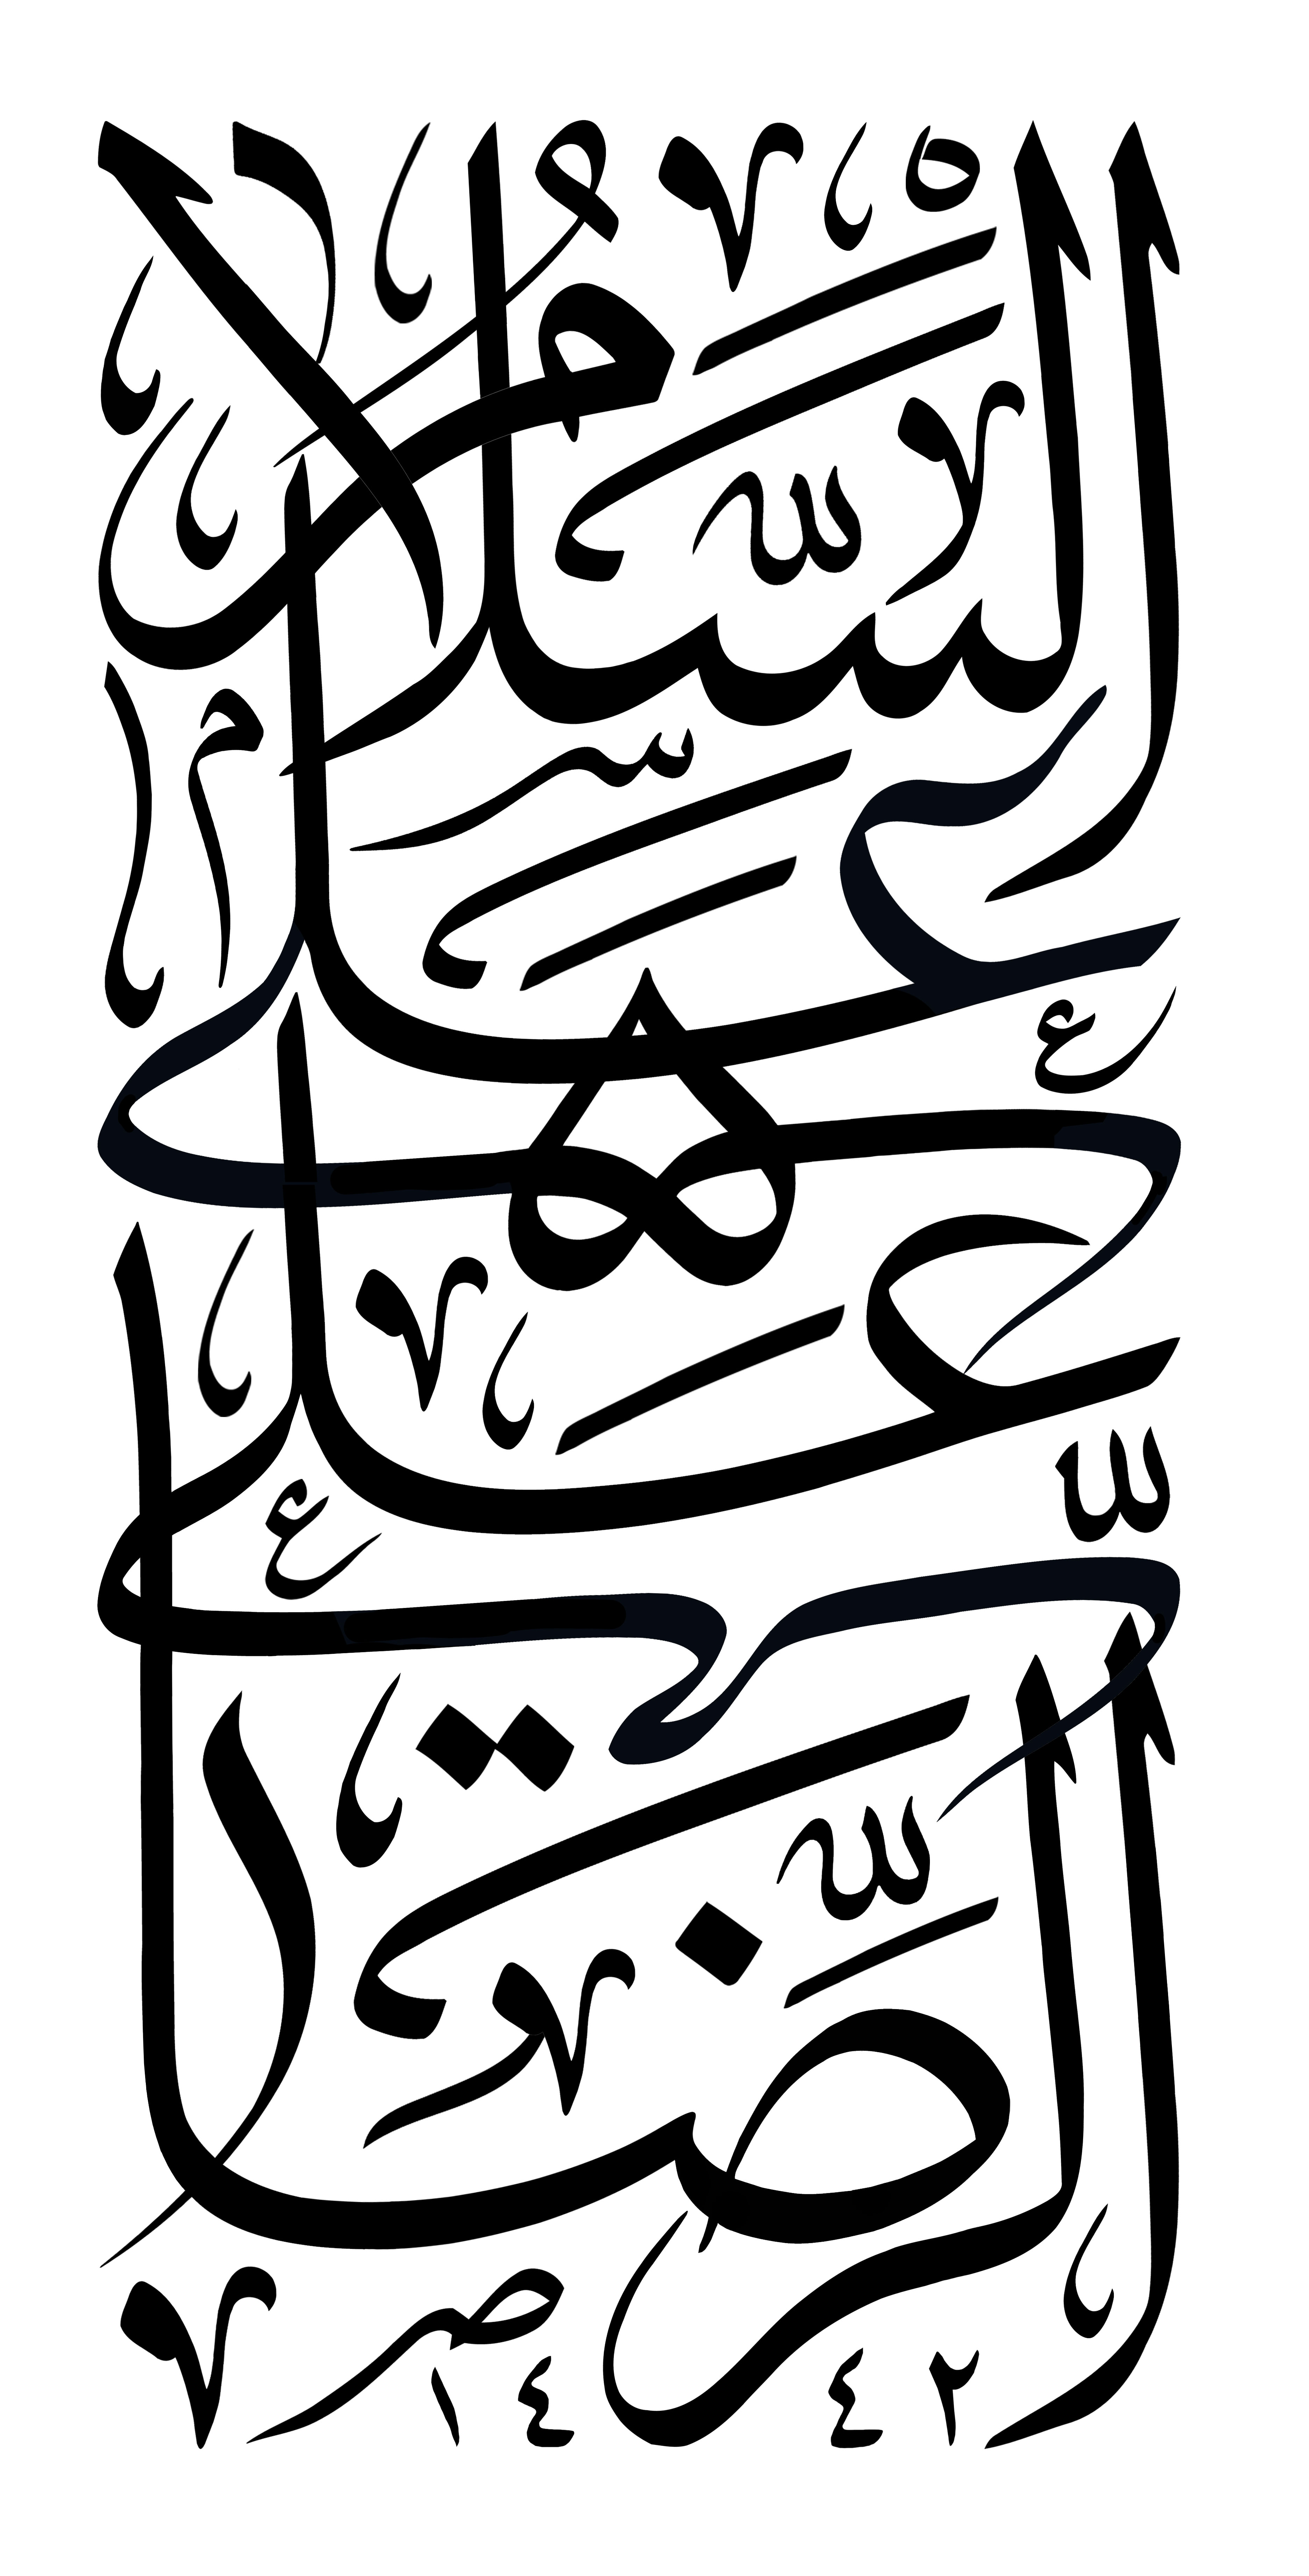 علي الرضا
عليه السلام
١٤٤٢